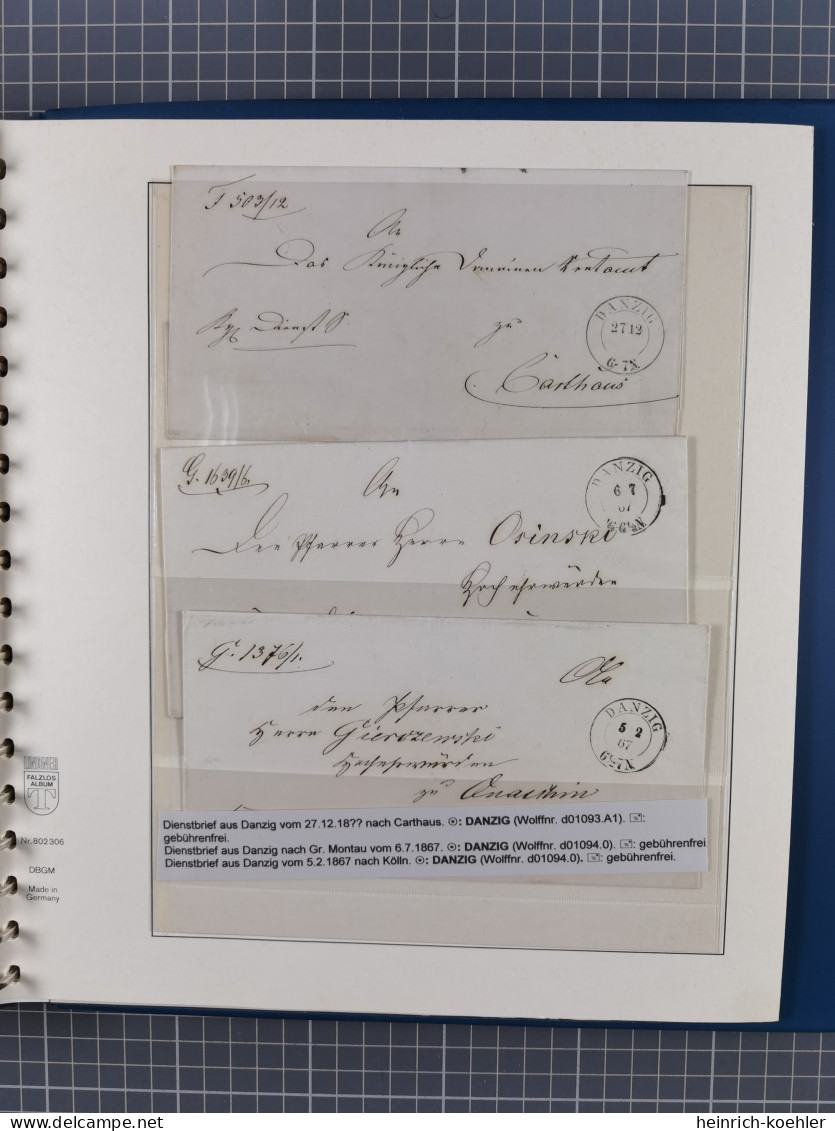 F 503/12
An
Das Königliche Domainen Rentamt
DANZIG
27 12
6-7N
zu
Carthaus
G. 1639/6.
An
DANZIG
6 7
67
Den Pfarrer Herrn Osinski
Hochehrwürden
G. 1376/1.
An
den Pfarrer
DANZIG
5 2
67
Herrn Gierszewski
Hochehrwürden
zu
LINDNER
FALZLOS
ALBUM
T
Nr. 802306
DBGM
Made in
Germany
Dienstbrief aus Danzig vom 27.12.18?? nach Carthaus. ⦿: DANZIG (Wolffnr. d01093.A1). 🖃:
gebührenfrei.
Dienstbrief aus Danzig nach Gr. Montau vom 6.7.1867. ⦿: DANZIG (Wolffnr. d01094.0). 🖃: gebührenfrei
Dienstbrief aus Danzig vom 5.2.1867 nach Kölln. ⦿: DANZIG (Wolffnr. d01094.0). 🖃: gebührenfrei.
www.delcampe.net
heinrich-koehler